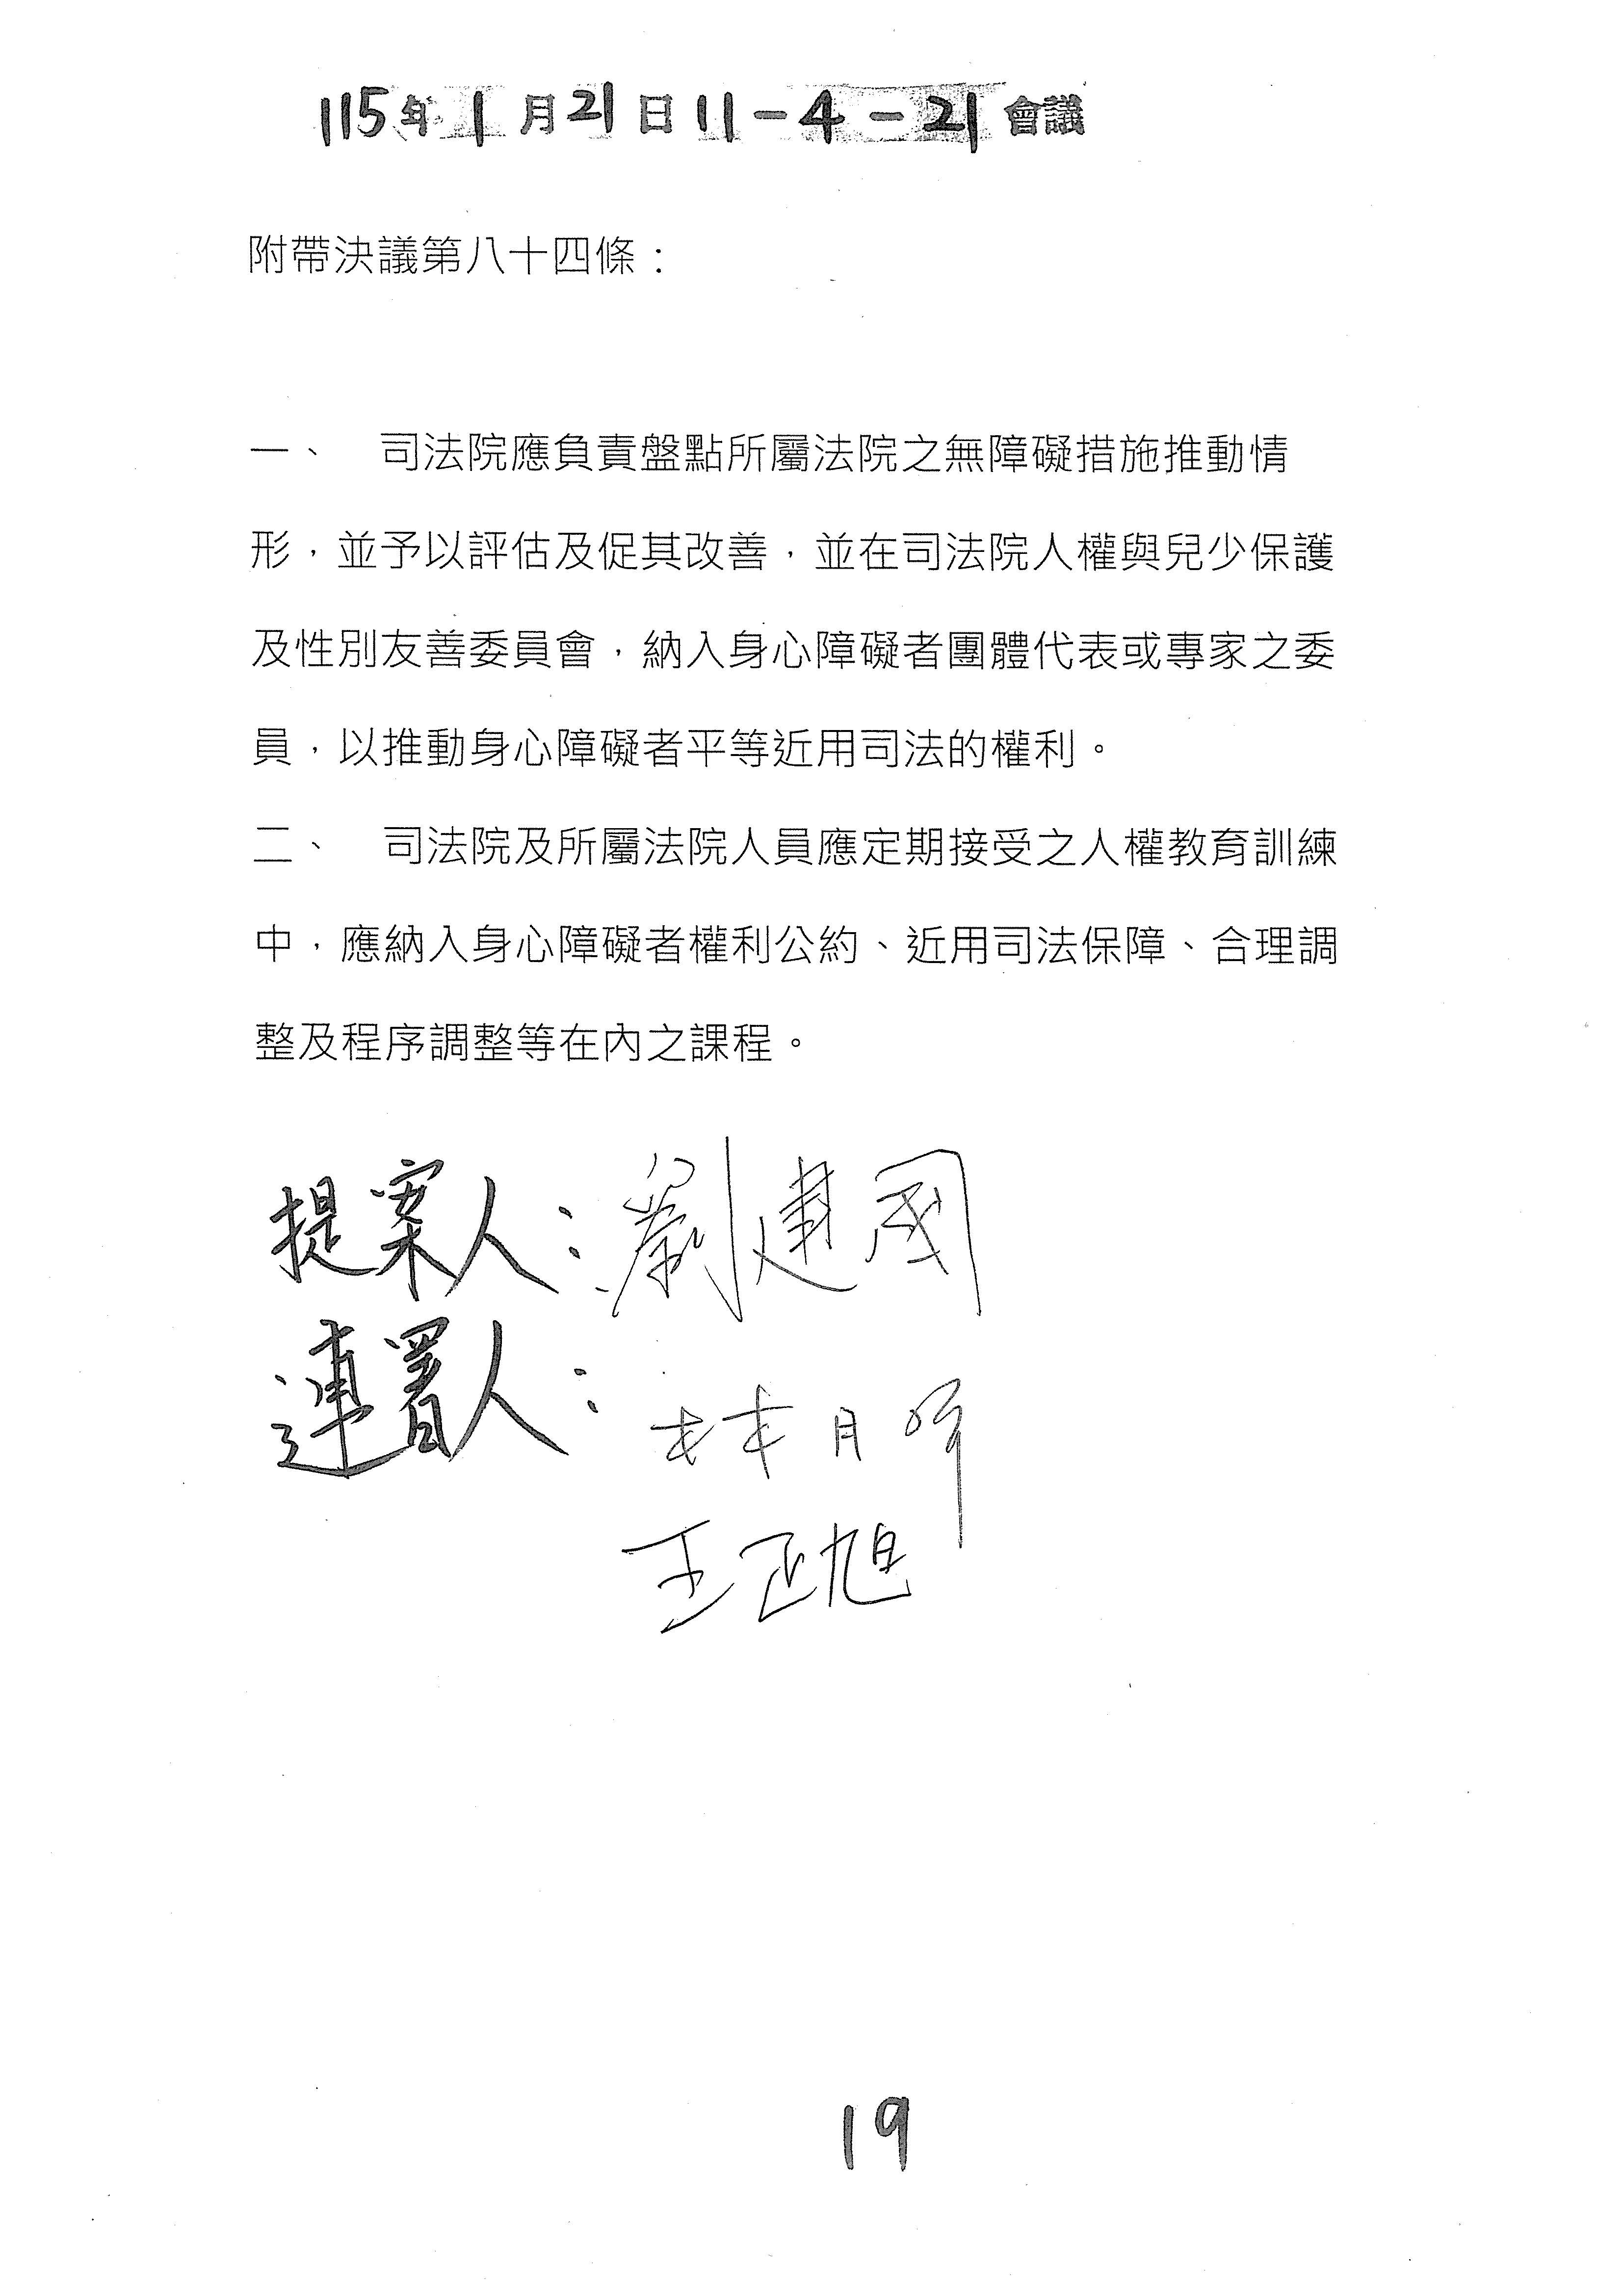 115年1月21日11-4-21會議
附帶決議第八十四條：
一、　司法院應負責盤點所屬法院之無障礙措施推動情
形，並予以評估及促其改善，並在司法院人權與兒少保護
及性別友善委員會，納入身心障礙者團體代表或專家之委
員，以推動身心障礙者平等近用司法的權利。
二、　司法院及所屬法院人員應定期接受之人權教育訓練
中，應納入身心障礙者權利公約、近用司法保障、合理調
整及程序調整等在內之課程。
提案人：劉建國
連署人：
林月琴
王正旭
19